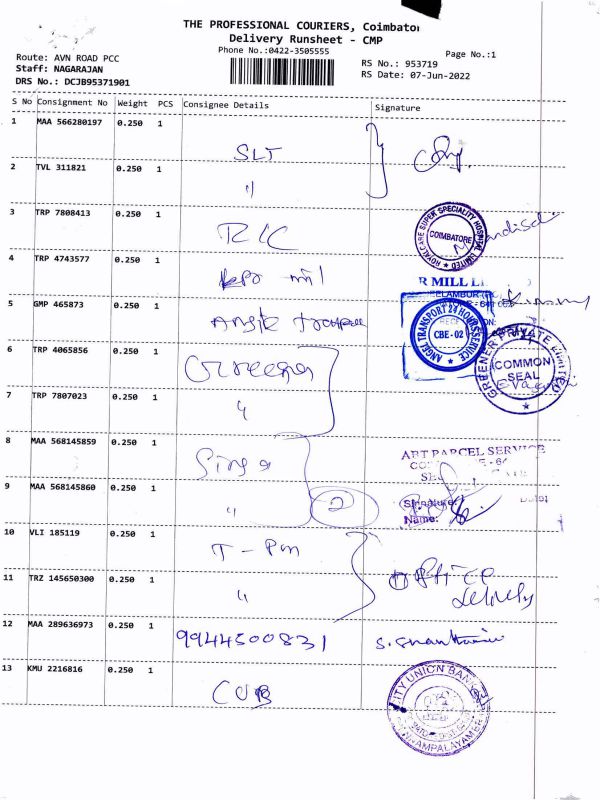 THE PROFESSIONAL COURIERS, Coimbator
Delivery Runsheet - CMP
Phone No.:0422-3505555
Page No.:1
Route: AVN ROAD PCC
Staff: NAGARAJAN
DRS No.: DCJB95371901
RS No.: 953719
RS Date: 07-Jun-2022
S No Consignment No Weight PCS Consignee Details Signature
1 MAA 566280197 0.250 1 SLT
2 TVL 311821 0.250 1 "
3 TRP 7808413 0.250 1
ROYALCARE SUPER SPECIALITY HOSPITAL LIMITED
COIMBATORE
4 TRP 4743577 0.250 1 kpr mil
R MILL LI
5 GMP 465873 0.250 1 Angle
ANGEL TRANSPORT 24 HOURS SERVICE
CBE-02
6 TRP 4065856 0.250 1 Greener
GREENER PRIVATE LIMITED
COMMON
SEAL
7 TRP 7807023 0.250 1 "
8 MAA 568145859 0.250 1
ART PARCEL SERVICE
9 MAA 568145860 0.250 1 " 2
Signature:
Name:
10 VLI 185119 0.250 1 T-Pm
11 TRZ 145650300 0.250 1 " office
delivery
12 MAA 289636973 0.250 1 9944500831
13 KMU 2216816 0.250 1 CUB
CITY UNION BANK